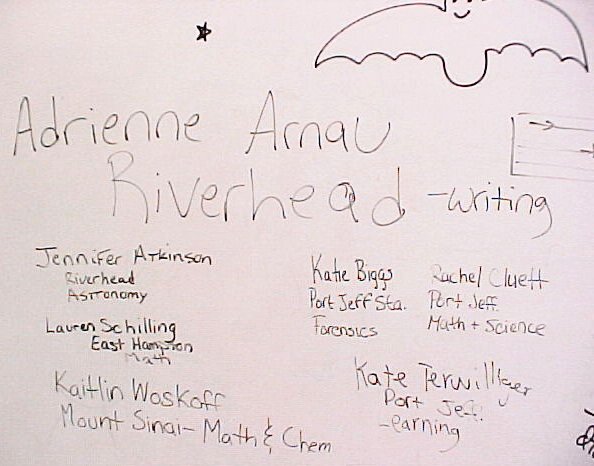 Adrienne Arnau
Riverhead -writing
Jennifer Atkinson
Riverhead
Astronomy
Lauren Schilling
East Hampton
Math
Kaitlin Woskoff
Mount Sinai- Math & Chem
Katie Biggs
Port Jeff Sta.
Forensics
Rachel Cluett
Port Jeff.
Math + Science
Kate Terwilliger
Port Jeff.
-earning